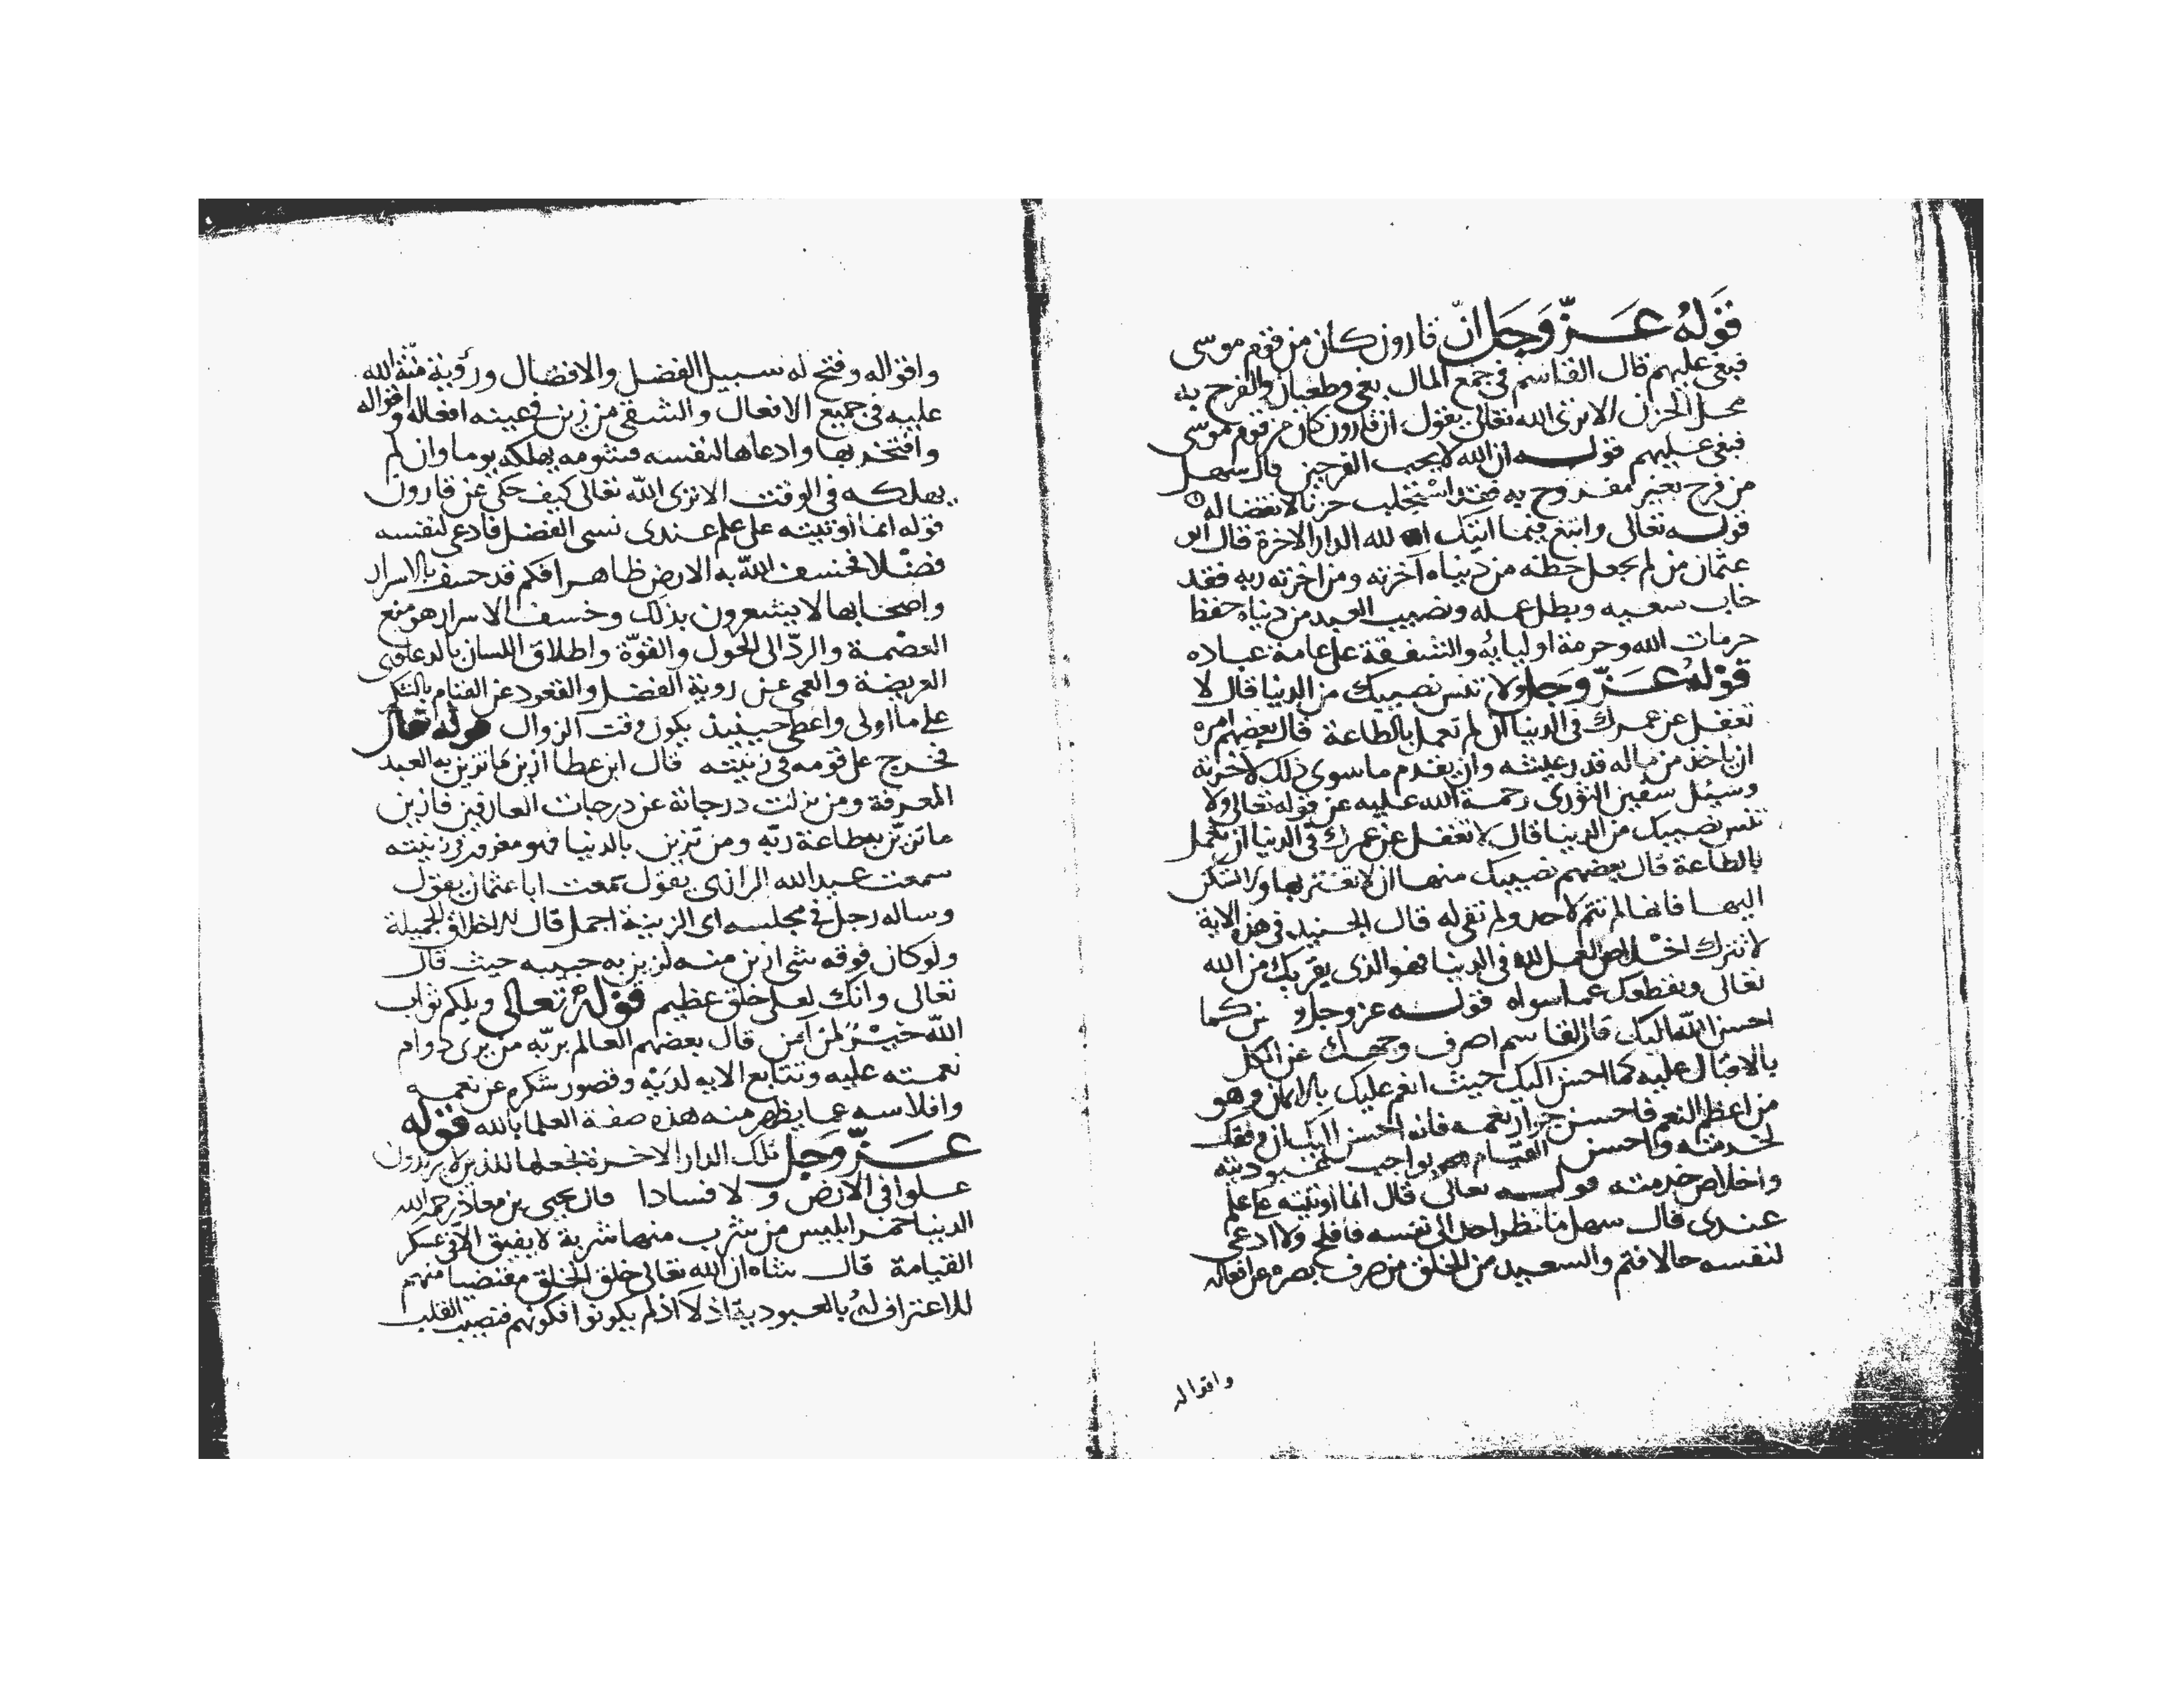 قوله عزّ وجل ان قارون كان من قوم موسى
فبغى عليهم قال القاسم في جمع المال بغي وطغيان والفرح به
محل الحزن الا ترى الله تعالى يقول ان قارون كان من قوم موسى
فبغى عليهم قوله ان الله لا يحب الفرحين قال سهل
من فرح بغير مفروح به فقد استجلب حزنا لا انقضا له
قوله تعالى وابتغ فيما اتيك الله الدار الاخرة قال ابو
عثمان من لم يجعل حظه من دنياه آخرته ومن اخرته ربه فقد
خاب سعيه وبطل عمله ونصيب العبد من دنياه حفظ
حرمات الله وحرمة اوليايه والشفقة على عامة عباده
قوله عزّ وجل ولا تنس نصيبك من الدنيا قال لا
تغفل عن عمرك في الدنيا ان لم تعمل بالطاعة قال بعضهم امره
ان ياخذ من ماله قدر عيشه وان يقدم ما سوى ذلك لاخرته
وسيئل سفين الثوري رحمة الله عليه عن قوله تعالى ولا
تنس نصيبك من الدنيا قال لا تغفل عن عمرك في الدنيا ان تعمل
بالطاعة قال بعضهم نصيبك منها ان لا تغتر بها ولا تسكن
اليها فانها لم تتم لاحد ولم تبق له قال الجنيد في هذه الاية
لا تترك اخلاص العمل لله في الدنيا فهو الذي يقربك من الله
تعالى ويقطعك عما سواه قوله عز وجل و كما
احسن الله اليك قال القاسم اصرف وجهك عن الكل
بالاقبال عليه كما احسن اليك حيث انعم عليك بالايمان وهو
من اعظم النعم فاحسن جوار نعمه فانه احسن اليك بان وفقك
لخدمته واحسن القيام بواجب عبوديته
واخلاص خدمته قوله تعالى قال انما اوتيته على علم
عندي قال سهل ما نظر احد الى نفسه فافلح ولا ادعى
لنفسه حالا فتم والسعيد من الخلق من صرف بصره عن افعاله
واقواله
واقواله وفتح له سبيل الفضل والافضال ورؤية منّة الله
عليه في جميع الافعال والشقي من زين في عينه افعاله واقواله
وافتخر بها وادعاها لنفسه فشومه يهلكه يوما وان لم
يهلكه في الوقت الا ترى الله تعالى كيف حكى عن قارون
قوله انما اوتيته على علم عندي نسى الفضل فادعى لنفسه
فضلا فخسف الله به الارض ظاهرا فكم قد خسف بالاسرار
واصحابها لا يشعرون بذلك وخسف الاسرار هو منع
العصمة والردّ الى الحول والقوّة واطلاق اللسان بالدعاوى
العريضة والعمى عن روية الفضل والقعود عن القيام بالشكر
على ما اولى واعطى حينيذ يكون وقت الزوال قوله تعالى
فخرج على قومه في زينته قال ابن عطا ازين ما تزين به العبد
المعرفة ومن نزلت درجاته عن درجات العارفين فازين
ما تزيّن به طاعة ربّه ومن تزين بالدنيا فهو مغرور في زينته
سمعت عبد الله الرازي يقول سمعت ابا عثمان يقول
وساله رجل في مجلسه اى الزينة اجمل قال الاخلاق الجميلة
ولو كان فوقه شي ازين منه لزين به حبيبه حيث قال
تعالى وانك لعلى خلق عظيم قوله تعالى ويلكم ثواب
الله خير لمن آمن قال بعضهم العالم بربّه من يرى دوام
نعمته عليه وتتابع الايه لديه وقصور شكره عن نعمه
وافلاسه عما يظهر منه هذه صفة العلما بالله قوله
عزّ وجل تلك الدار الاخرة نجعلها للذين لا يريدون
علوا في الارض ولا فسادا قال يحيى بن معاذ رحمه الله
الدنيا خمر ابليس من شرب منها شربة لا يفيق الا في عسكر
القيامة قال شاه ان الله تعالى خلق الخلق مقتضيا منهم
للاعتراف له بالعبودية اذلا اذ لم يكونوا فكونهم